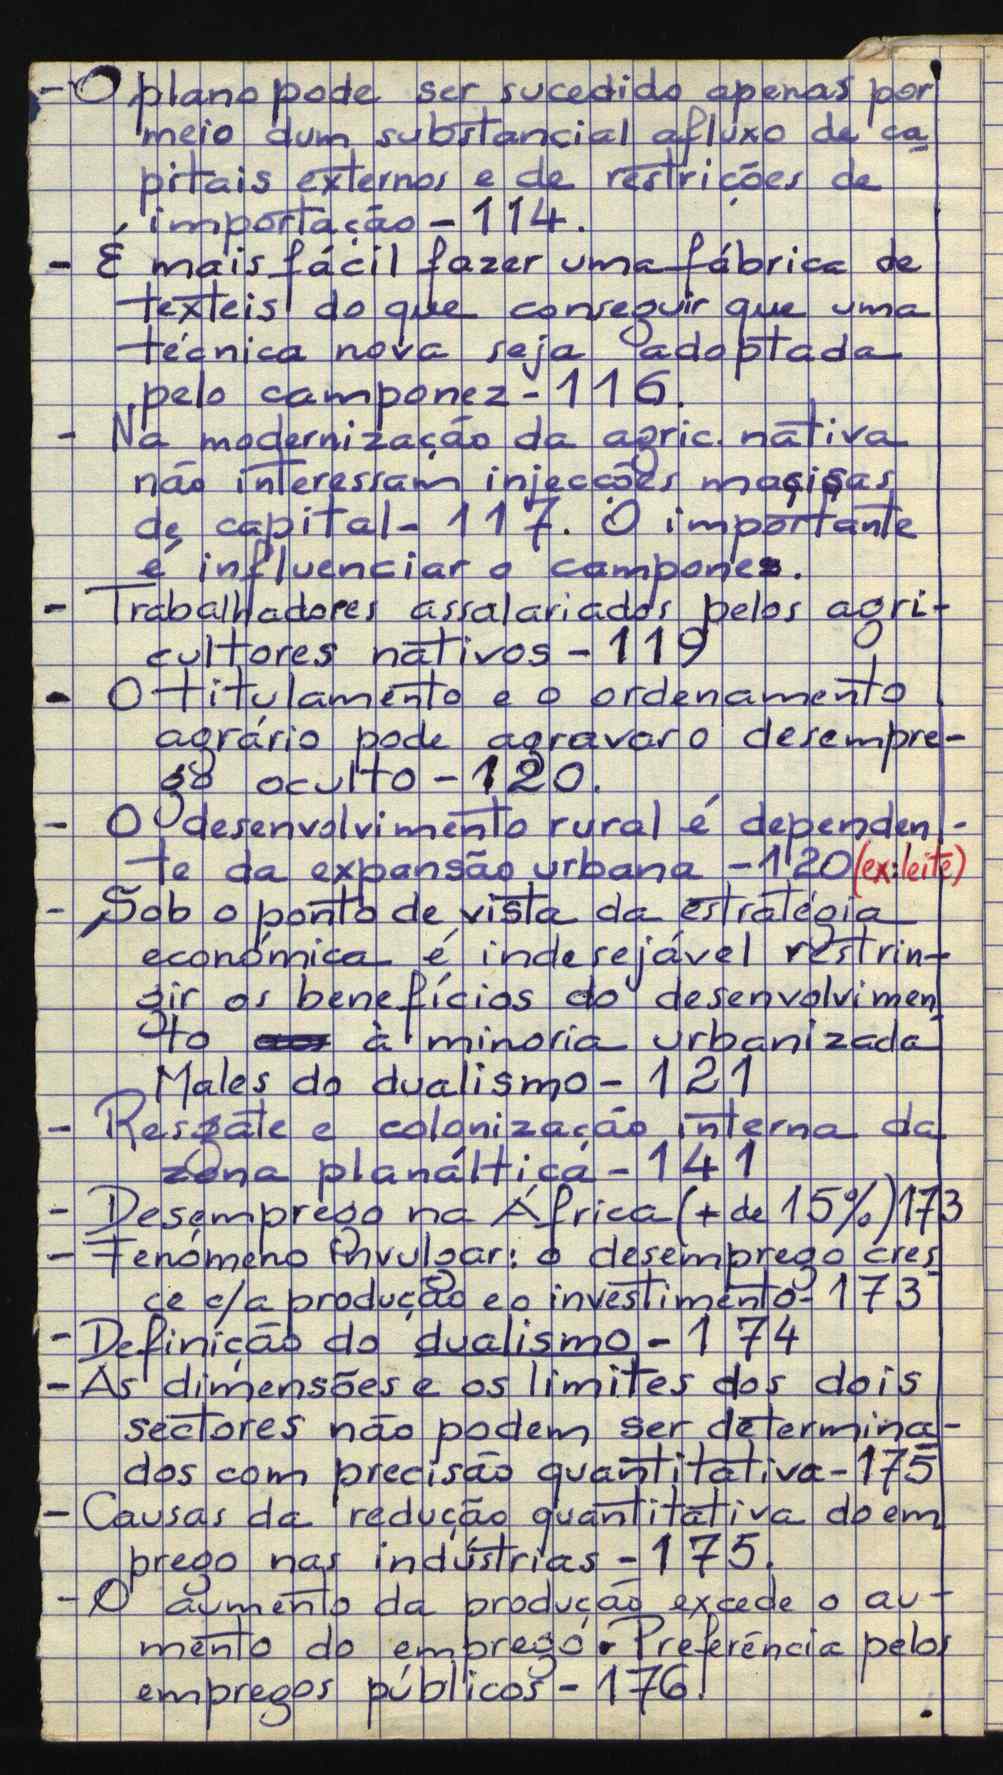 - O plano pode ser sucedido apenas por
meio dum substancial afluxo de ca
pitais externos e de restrições de
importação - 114.
- É mais fácil fazer uma fábrica de
texteis do que conseguir que uma
técnica nova seja adoptada
pelo camponez - 116.
- Na modernização da agric. nativa
não interessam injecções maciças
de capital - 117. O importante
é influenciar o campones.
- Trabalhadores assalariados pelos agri-
cultores nativos - 119
- O titulamento e o ordenamento
agrário pode agravar o desempre-
go oculto - 120.
- O desenvolvimento rural é dependen-
te da expansão urbana - 120 (ex: leite)
- Sob o ponto de vista da estratégia
económica é indesejável restrin-
gir os benefícios do desenvolvimen
to à minoria urbanizada
Males do dualismo - 121
- Resgate e colonização interna da
zona planáltica - 141
- Desemprego na África (+ de 15%) 173
- Fenómeno invulgar: o desemprego cres
ce c/a produção e o investimento - 173
- Definição do dualismo - 174
- As dimensões e os limites dos dois
sectores não podem ser determina-
dos com precisão quantitativa - 175
- Causas da redução quantitativa do em
prego nas indústrias - 175.
- O aumento da produção excede o au-
mento do emprego. Preferência pelos
empregos públicos - 176.